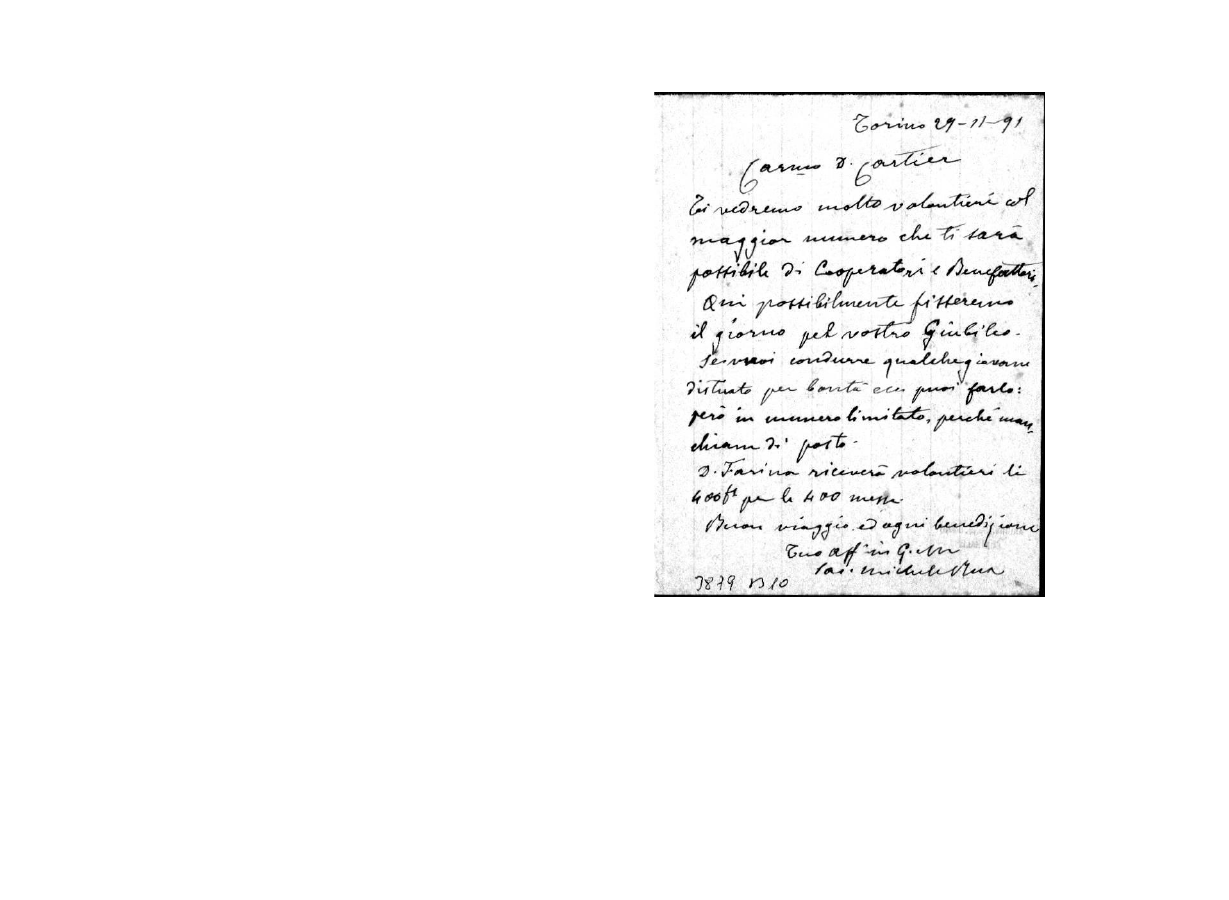 Torino 29-11-91
Carmo D. Cartier
Ti vedremo molto volontieri col
maggior numero che ti sarà
possibile di Cooperatori e Benefattori.
Qui possibilmente fisseremo
il giorno pel vostro Giubileo.
Se vuoi condurre qualche giovane
distinto per bontà ecc. puoi farlo:
però in numero limitato, perché man-
chiam di posto.
D. Farina riceverà volontieri li
400 fr per le 400 messe.
Buon viaggio ed ogni benedizione
Tuo aff in G. e M
Sac. Michele Rua
3879 B10